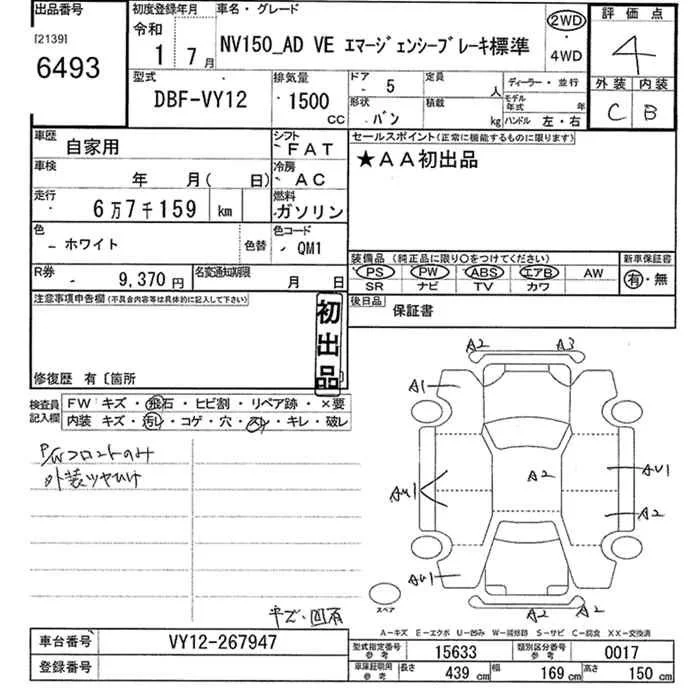 出品番号
[2139]
6493
初度登録年月
令和
1 7月
車名・グレード
NV150_AD VE エマージェンシーブレーキ標準
2WD
・
4WD
評価点
4
外装 内装
C B
型式
DBF-VY12
排気量
1500
CC
ドア
5
定員
人
形状
バン
積載
kg
ディーラー・並行
モデル年式
年
ハンドル 左・右
車歴
自家用
シフト
FAT
車検
年 月( 日)
冷房
AC
走行
6万7千159 km
燃料
ガソリン
色
ホワイト
色替
色コード
QM1
R券
9,370円
名変通知期限
月 日
セールスポイント(正常に機能するものに限ります)
★AA初出品
装備品(純正品に限り○をつけてください)
PS PW ABS エアB AW
SR ナビ TV カワ
新車保証書
有・無
後日品
保証書
注意事項申告欄(不具合内容等は具体的に記入して下さい)
初出品
修復歴 有〔箇所
検査員記入欄
FW キズ・飛石・ヒビ割・リペア跡・×要
内装 キズ・汚レ・コゲ・穴・スレ・キレ・破レ
P/Wフロントのみ
外装ツヤひけ
キズ・凹有
A2 A3
A1
A2
AU1
AU1
A2
AU1
A2 A2
スペア
A-キズ E-エクボ U-凹み W-補修跡 S-サビ C-腐食 XX-交換済
車台番号
VY12-267947
登録番号
型式指定番号
参考
15633
類別区分番号
参考
0017
車庫証明用
参考
長さ
439 cm
幅
169 cm
高さ
150 cm